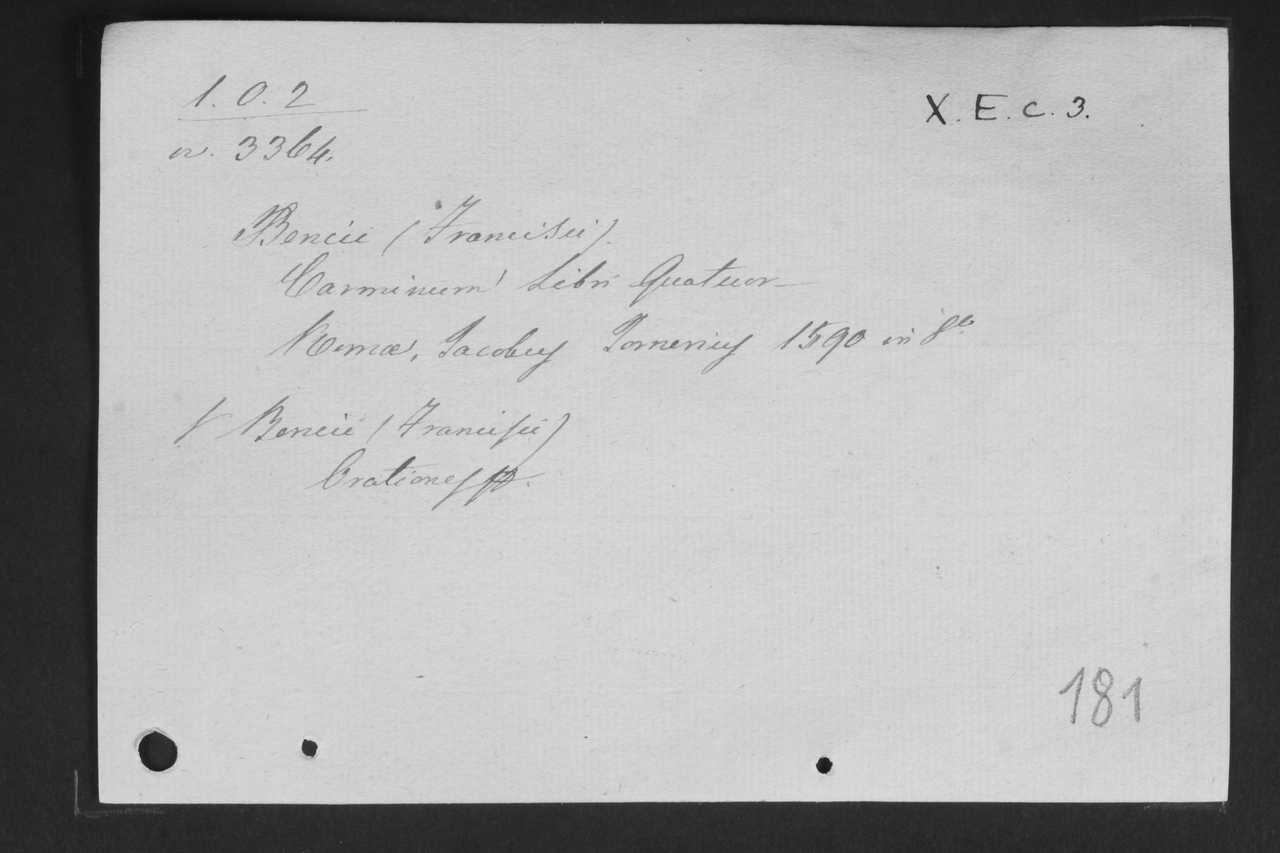 1. O. 2
X. E. c. 3.
nr. 3364.
Bencii (Francisci).
Carminum Libri Quatuor
Romæ, Jacobus Tornerius 1590 in 8º
V Bencii (Francisci)
Orationes pp.
181